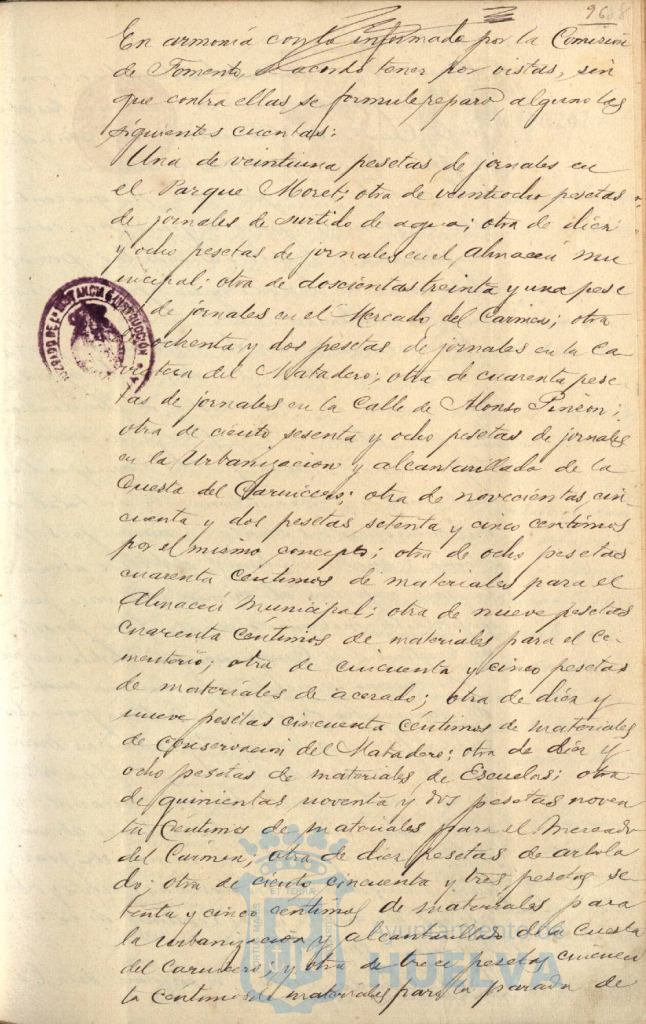 96
En armonía con lo informado por la Comisión
de Fomento, se acordó tener por vistas, sin
que contra ellas se formule reparo alguno las
siguientes cuentas:
Una de veintiuna pesetas de jornales en
el Parque Moret; otra de veintiocho pesetas
de jornales de surtido de agua; otra de diez
y ocho pesetas de jornales en el almacén mu
nicipal; otra de doscientas treinta y una pese
de jornales en el Mercado del Carmen; otra
ochenta y dos pesetas de jornales en la Ca-
del Matadero; otra de cuarenta pese-
tas de jornales en la Calle de Alonso Pinzón;
otra de ciento sesenta y ocho pesetas de jornales
en la Urbanización y alcantarillado de la
Cuesta del Carnicero; otra de novecientas cin-
cuenta y dos pesetas setenta y cinco céntimos
por el mismo concepto; otra de ocho pesetas
cuarenta céntimos de materiales para el
Almacén Municipal; otra de nueve pesetas
cuarenta céntimos de materiales para el Ce-
menterio; otra de cincuenta y cinco pesetas
de materiales de acerado; otra de diez y
nueve pesetas cincuenta céntimos de materiales
de conservación del Matadero; otra de diez y
ocho pesetas de materiales de Escuelas; otra
de quinientas noventa y dos pesetas noven
ta céntimos de materiales para el Mercado
del Carmen; otra de diez pesetas de arbola
do; otra de ciento cincuenta y tres pesetas se
tenta y cinco céntimos de materiales para
la urbanización y alcantarillado de la Cuesta
del Carnicero; y otra de trece pesetas cincuen
ta céntimos de materiales para la parada de
JUZGADO DE 1ª INSTANCIA É INSTRUCCIÓN
Ayuntamiento de
HUELVA